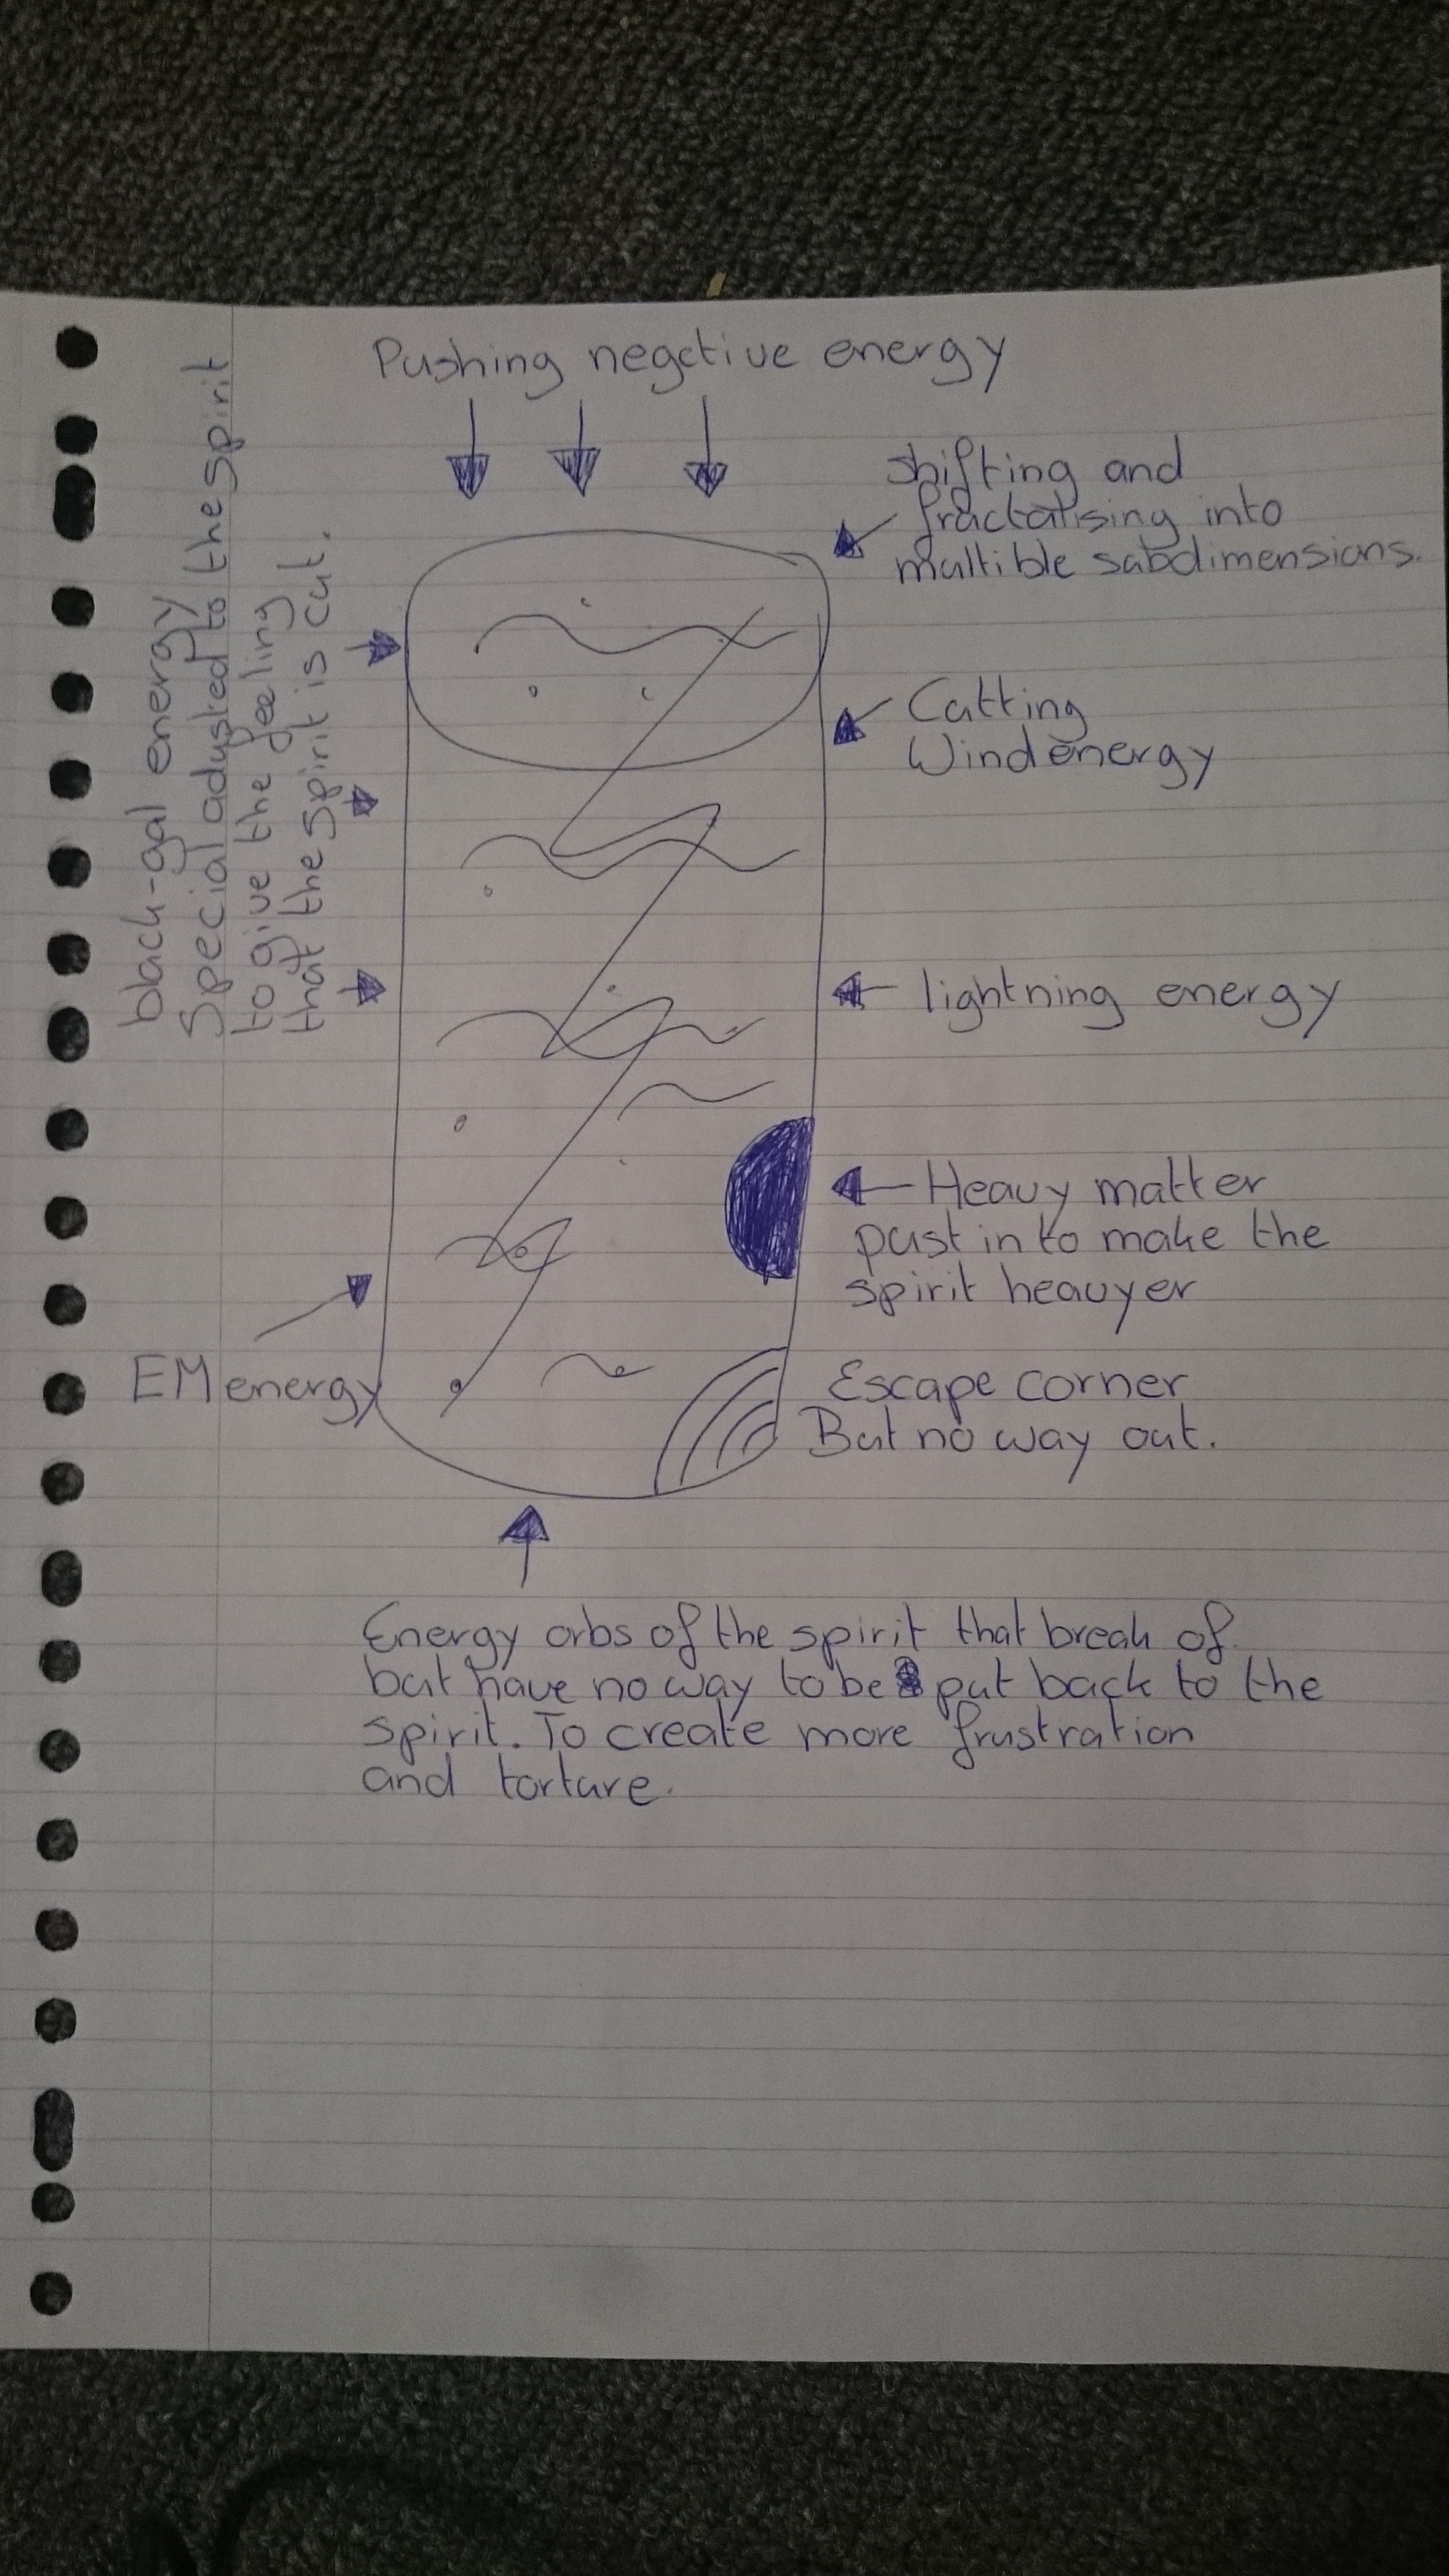 Pushing negctive energy
shifting and
fractalising into
multible subdimensions.
black-gal energy
Special adusted to the spirit
to give the feeling
that the spirit is cut.
Cutting
Windenergy
lightning energy
Heavy matter
pust in to make the
spirit heavyer
EM energy
Escape corner
But no way out.
Energy orbs of the spirit that break of
but have no way to be put back to the
spirit. To create more frustration
and torture.